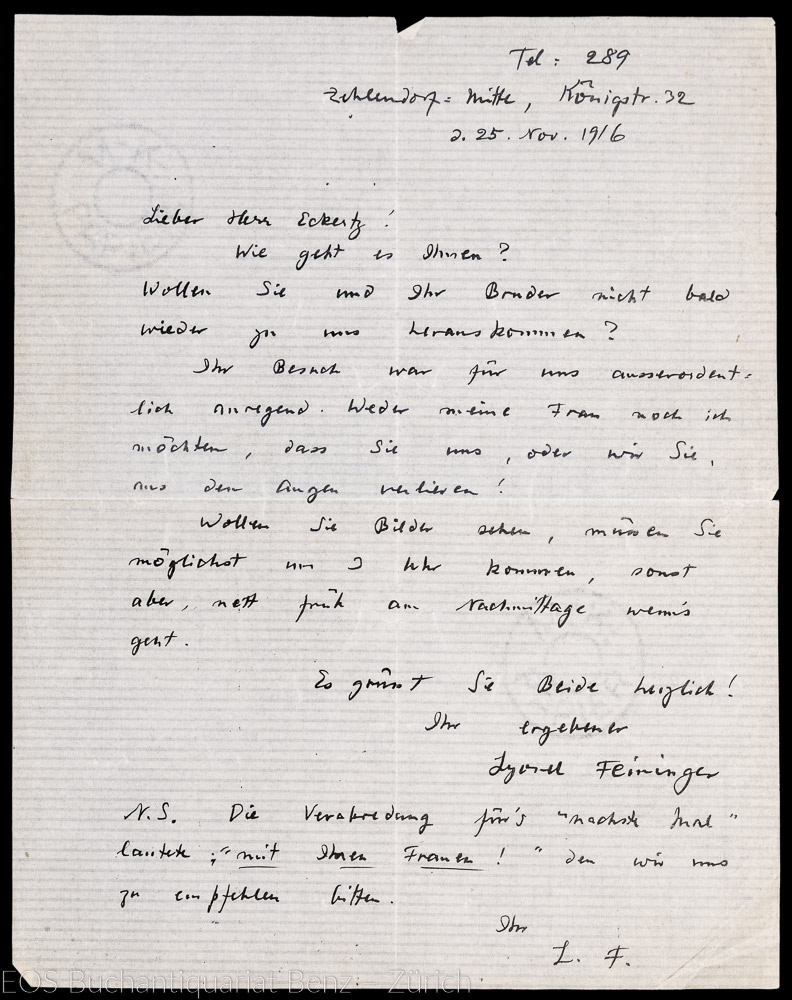 Tel: 289
Zehlendorf=Mitte, Königstr. 32
d. 25. Nov. 1916
Lieber Herr Eckertz!
Wie geht es Ihnen?
Wollen Sie und Ihr Bruder nicht bald
wieder zu uns herauskommen?
Ihr Besuch war für uns ausserordent=
lich anregend. Weder meine Frau noch ich
möchten, dass Sie uns, oder wir Sie,
aus den Augen verlieren!
Wollen Sie Bilder sehen, müssen Sie
möglichst um 3 Uhr kommen, sonst
aber, nett früh am Nachmittage wenn's
geht.
Es grüsst Sie Beide herzlich!
Ihr ergebener
Lyonel Feininger
N.S. Die Verabredung für's "nächste Mal"
lautete: "mit Ihren Frauen!" den wir uns
zu empfehlen bitten.
Ihr
L. F.
EOS Buchantiquariat Benz - Zürich